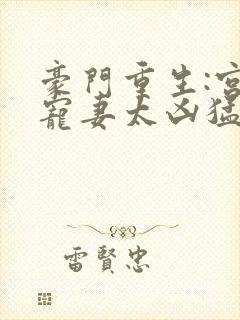 豪門重生:宮
寵妻太凶猛
雷賢忠